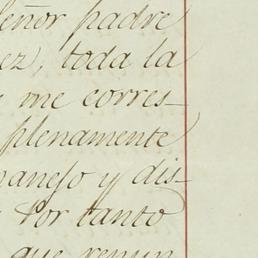 señor padre
ez, toda la
me corres-
plenamente
manejo y dis-
Por tanto
que renun